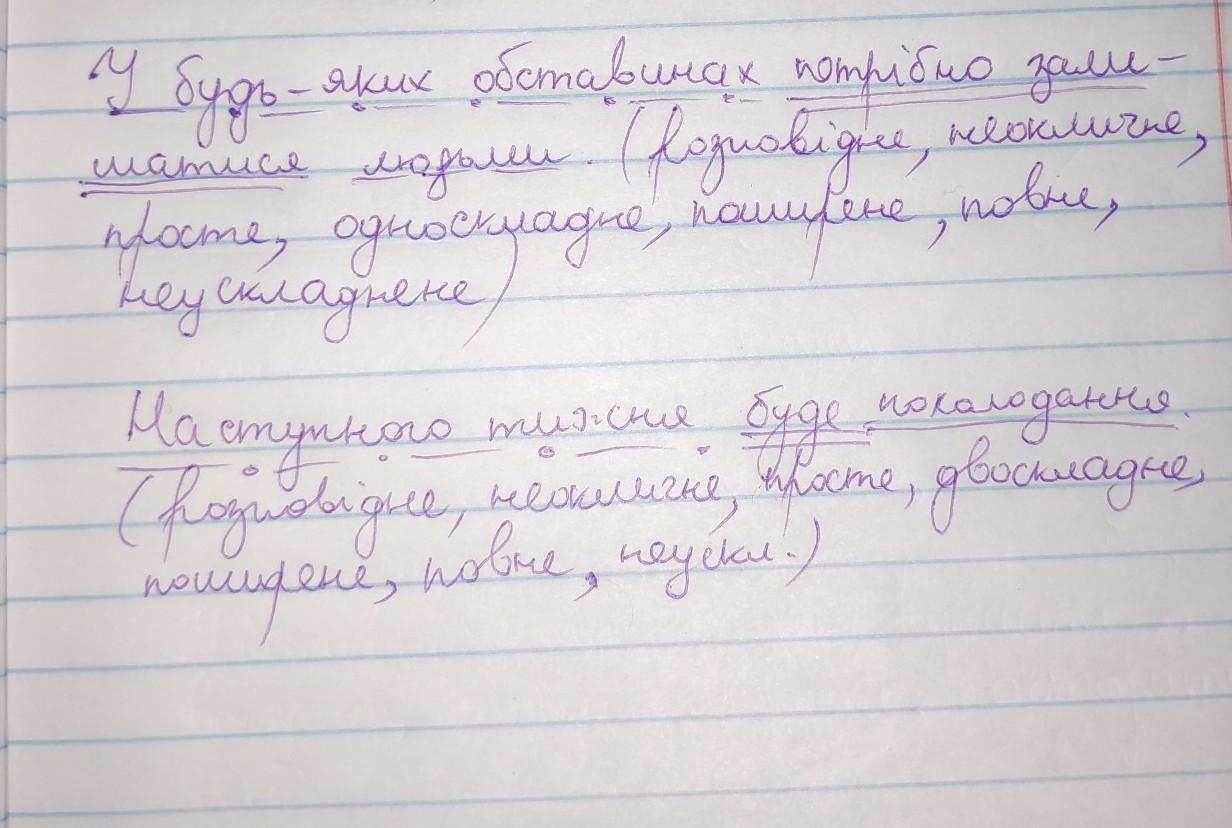 У будь-яких обставинах потрібно зали-
шатися людьми. (розповідне, неокличне,
просте, односкладне, поширене, повне,
неускладнене)
Наступного тижня буде похолодання.
(розповідне, неокличне, просте, двоскладне,
поширене, повне, неускл.)